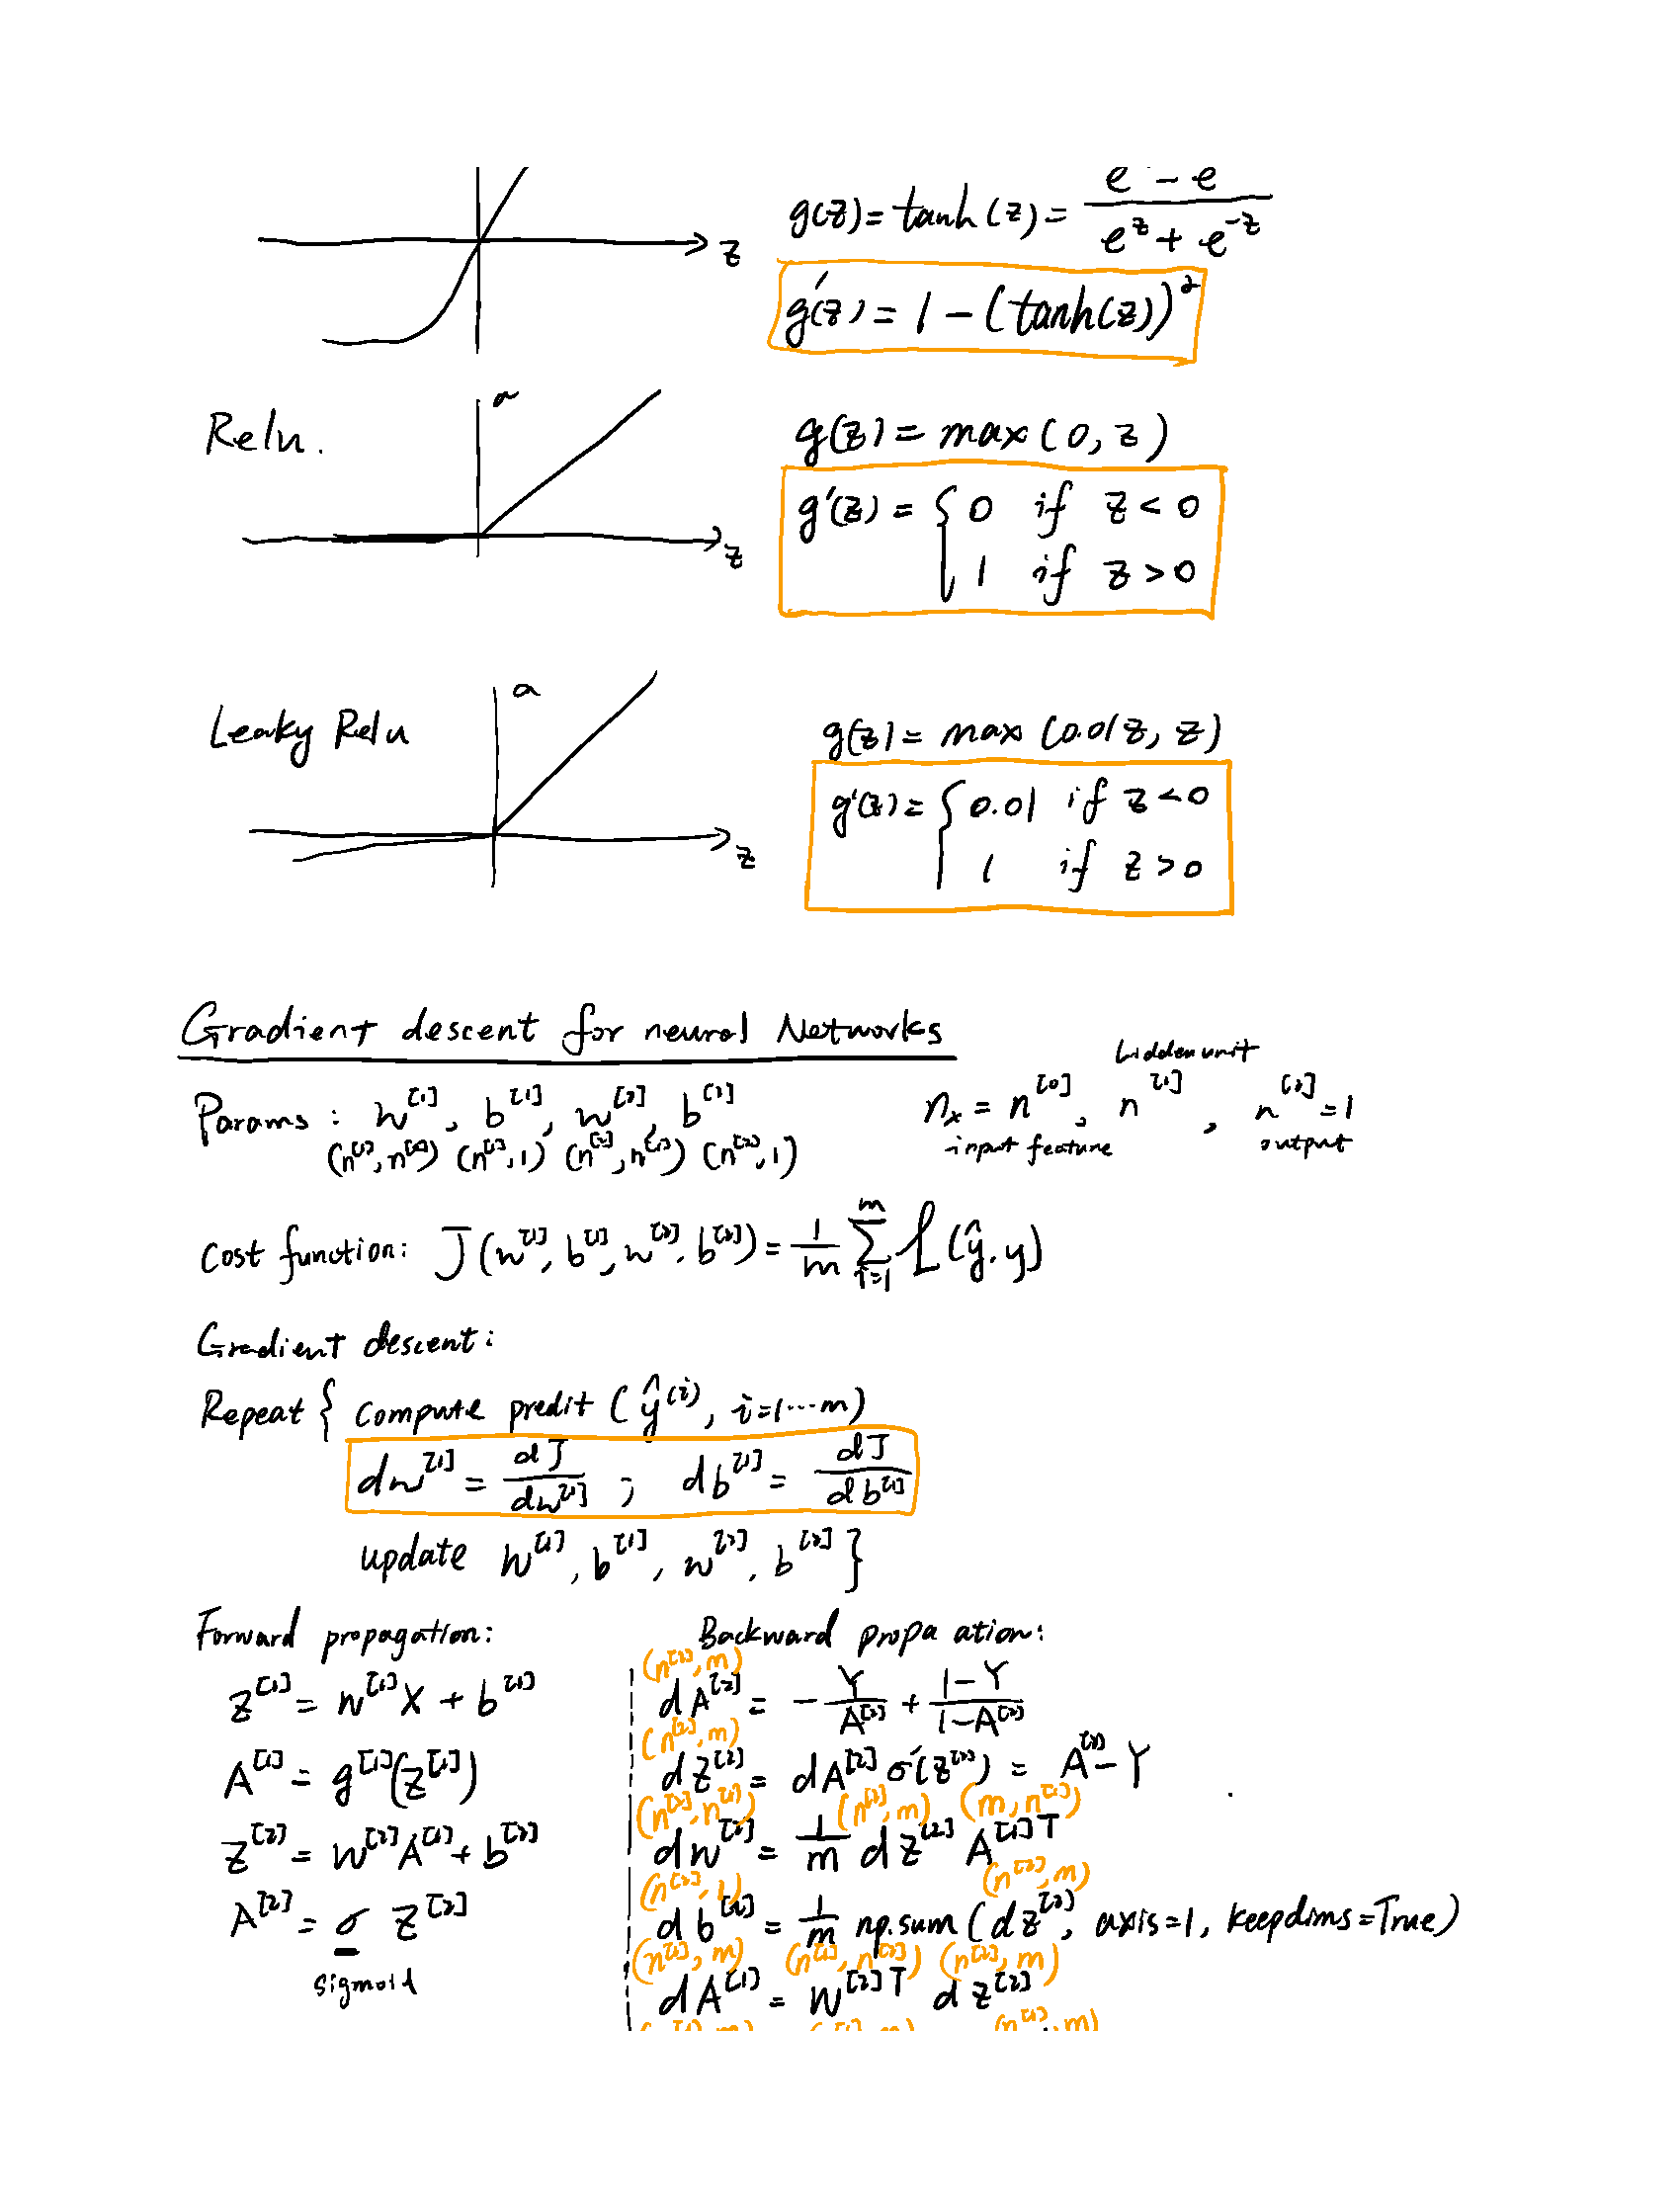 g(z) = tanh(z) = (e - e) / (e^z + e^-z)
z
g'(z) = 1 - (tanh(z))^2
Relu.
a
g(z) = max(0, z)
g'(z) = { 0 if z < 0
1 if z > 0
z
Leaky Relu
a
g(z) = max(0.01z, z)
g'(z) = { 0.01 if z < 0
1 if z > 0
z
Gradient descent for neural Networks
hidden unit
Params: w^[1], b^[1], w^[2], b^[2]
n_x = n^[0], n^[1], n^[2] = 1
(n^[1], n^[0]) (n^[1], 1) (n^[2], n^[1]) (n^[2], 1)
input feature output
Cost function: J(w^[1], b^[1], w^[2], b^[2]) = 1/m Σ_{i=1}^{m} L(ŷ, y)
Gradient descent:
Repeat { compute predit (ŷ^(i), i=1...m)
dw^[1] = dJ/dw^[1] ; db^[1] = dJ/db^[1]
update w^[1], b^[1], w^[2], b^[2] }
Forward propagation:
z^[1] = w^[1]X + b^[1]
A^[1] = g^[1](z^[1])
z^[2] = w^[2]A^[1] + b^[2]
A^[2] = σ z^[2]
sigmoid
Backward propa ation:
(n^[2], m)
dA^[2] = -Y/A^[2] + (1-Y)/(1-A^[2])
(n^[2], m)
dz^[2] = dA^[2] σ'(z^[2]) = A^[2] - Y
(n^[2], n^[1]) (n^[2], m) (m, n^[1])
dw^[2] = 1/m dz^[2] A^[1]T
(n^[2], 1) (n^[2], m)
db^[2] = 1/m np.sum(dz^[2], axis=1, keepdims=True)
(n^[1], m) (n^[1], n^[2]) (n^[2], m)
dA^[1] = w^[2]T dz^[2]